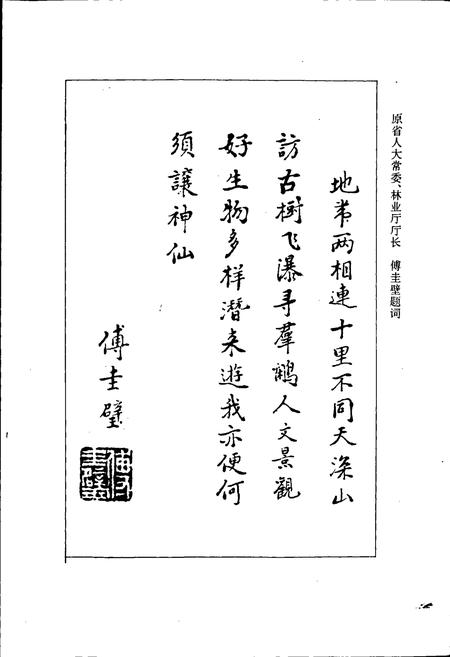 原省人大常委、林业厅厅长 傅圭壁题词
地带两相連十里不同天深山
訪古樹飞瀑寻羣鹇人文景觀
好生物多样潛来遊我亦便何
須讓神仙
傅圭璧
傅圭璧